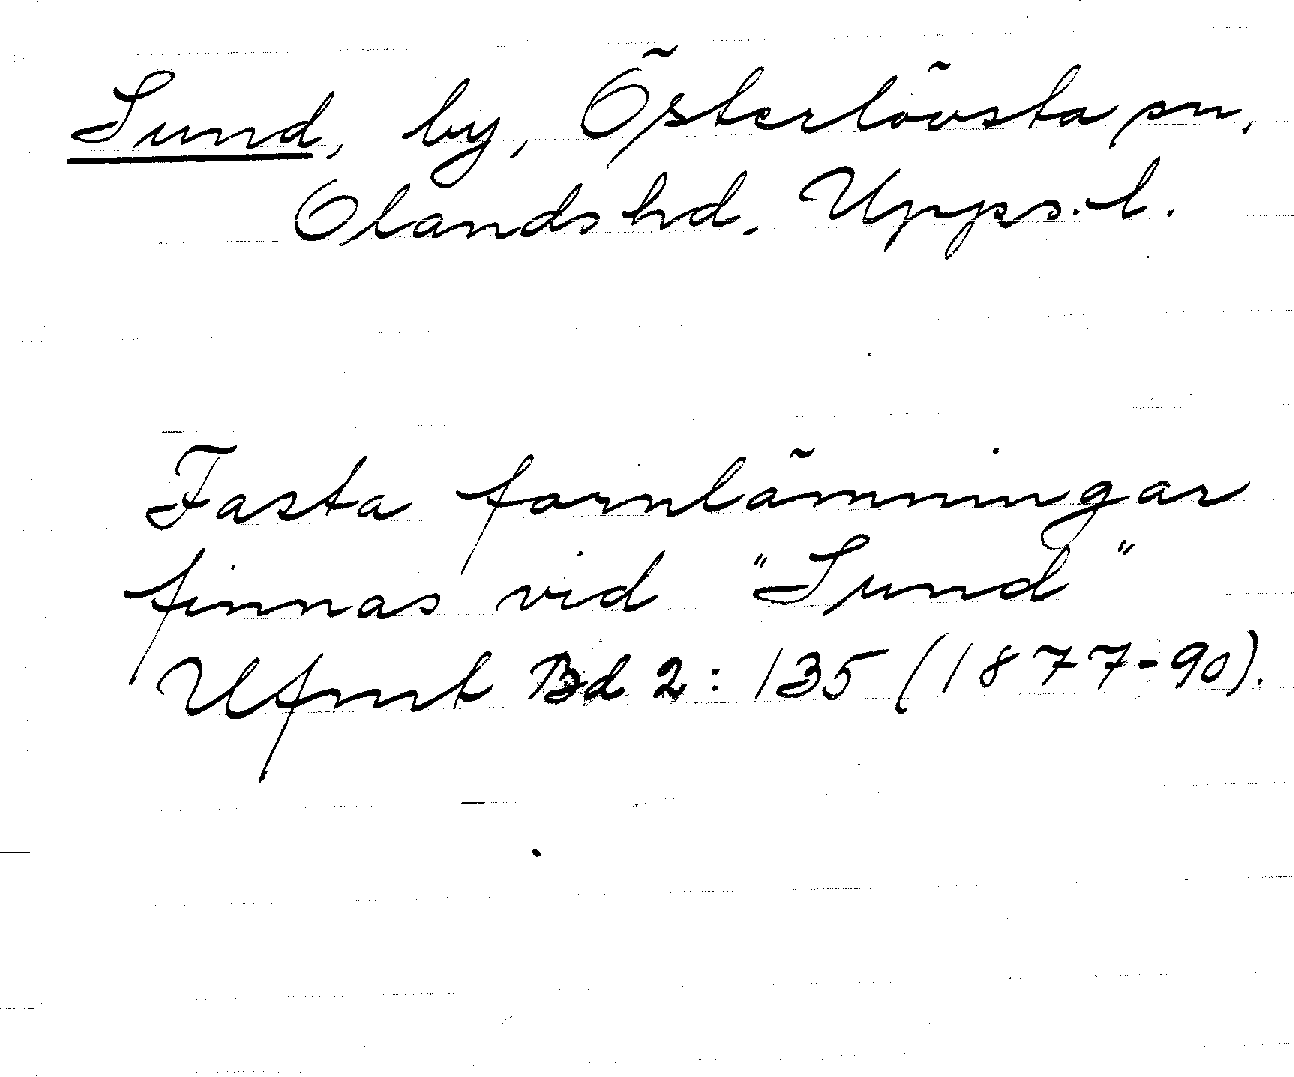 Sund, by, Österlövsta sn,
Olands hd. Upps. l.
Fasta fornlämningar
finnas vid "Sund"
Ufmt Bd 2: 135 (1877-90).